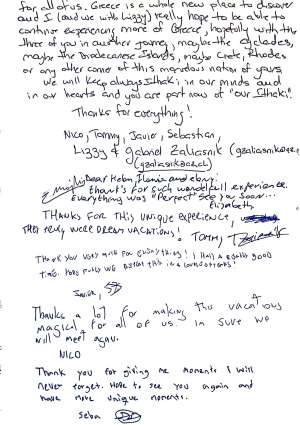 for all of us. Greece is a whole new place to discover
and I (and we with Lizzy) really hope to be able to
continue experiencing more of Greece, hopefully with the
three of you in another journey, maybe the Cyclades,
maybe the Dodecanese Islands, maybe Crete, Rhodes
or any other corner of this marvelous nation of yours
We will keep always Ithaki in our minds and
in our hearts and you are part now of "our Ithaki".
Thanks for everything!
Nico, Tammy, Javier, Sebastian,
Lizzy & Gabriel Zaliasnik
Dear
and
for such wonderfull experience.
Everything was "Perfect" see you soon...
Elizabeth
THANKS FOR THIS UNIQUE EXPERIENCE,
THEY REALLY WERE DREAM VACATIONS!
Tammy
Thank you very much for everything! I had a really good
time. Hopefully we repeat this in
Javier,
Thanks a lot for making this vacations
magical for all of us. im sure we
will meet again.
NICO
Thank you for giving me moments I will
never forget. Hope to see you again and
have more unique moments.
Seba